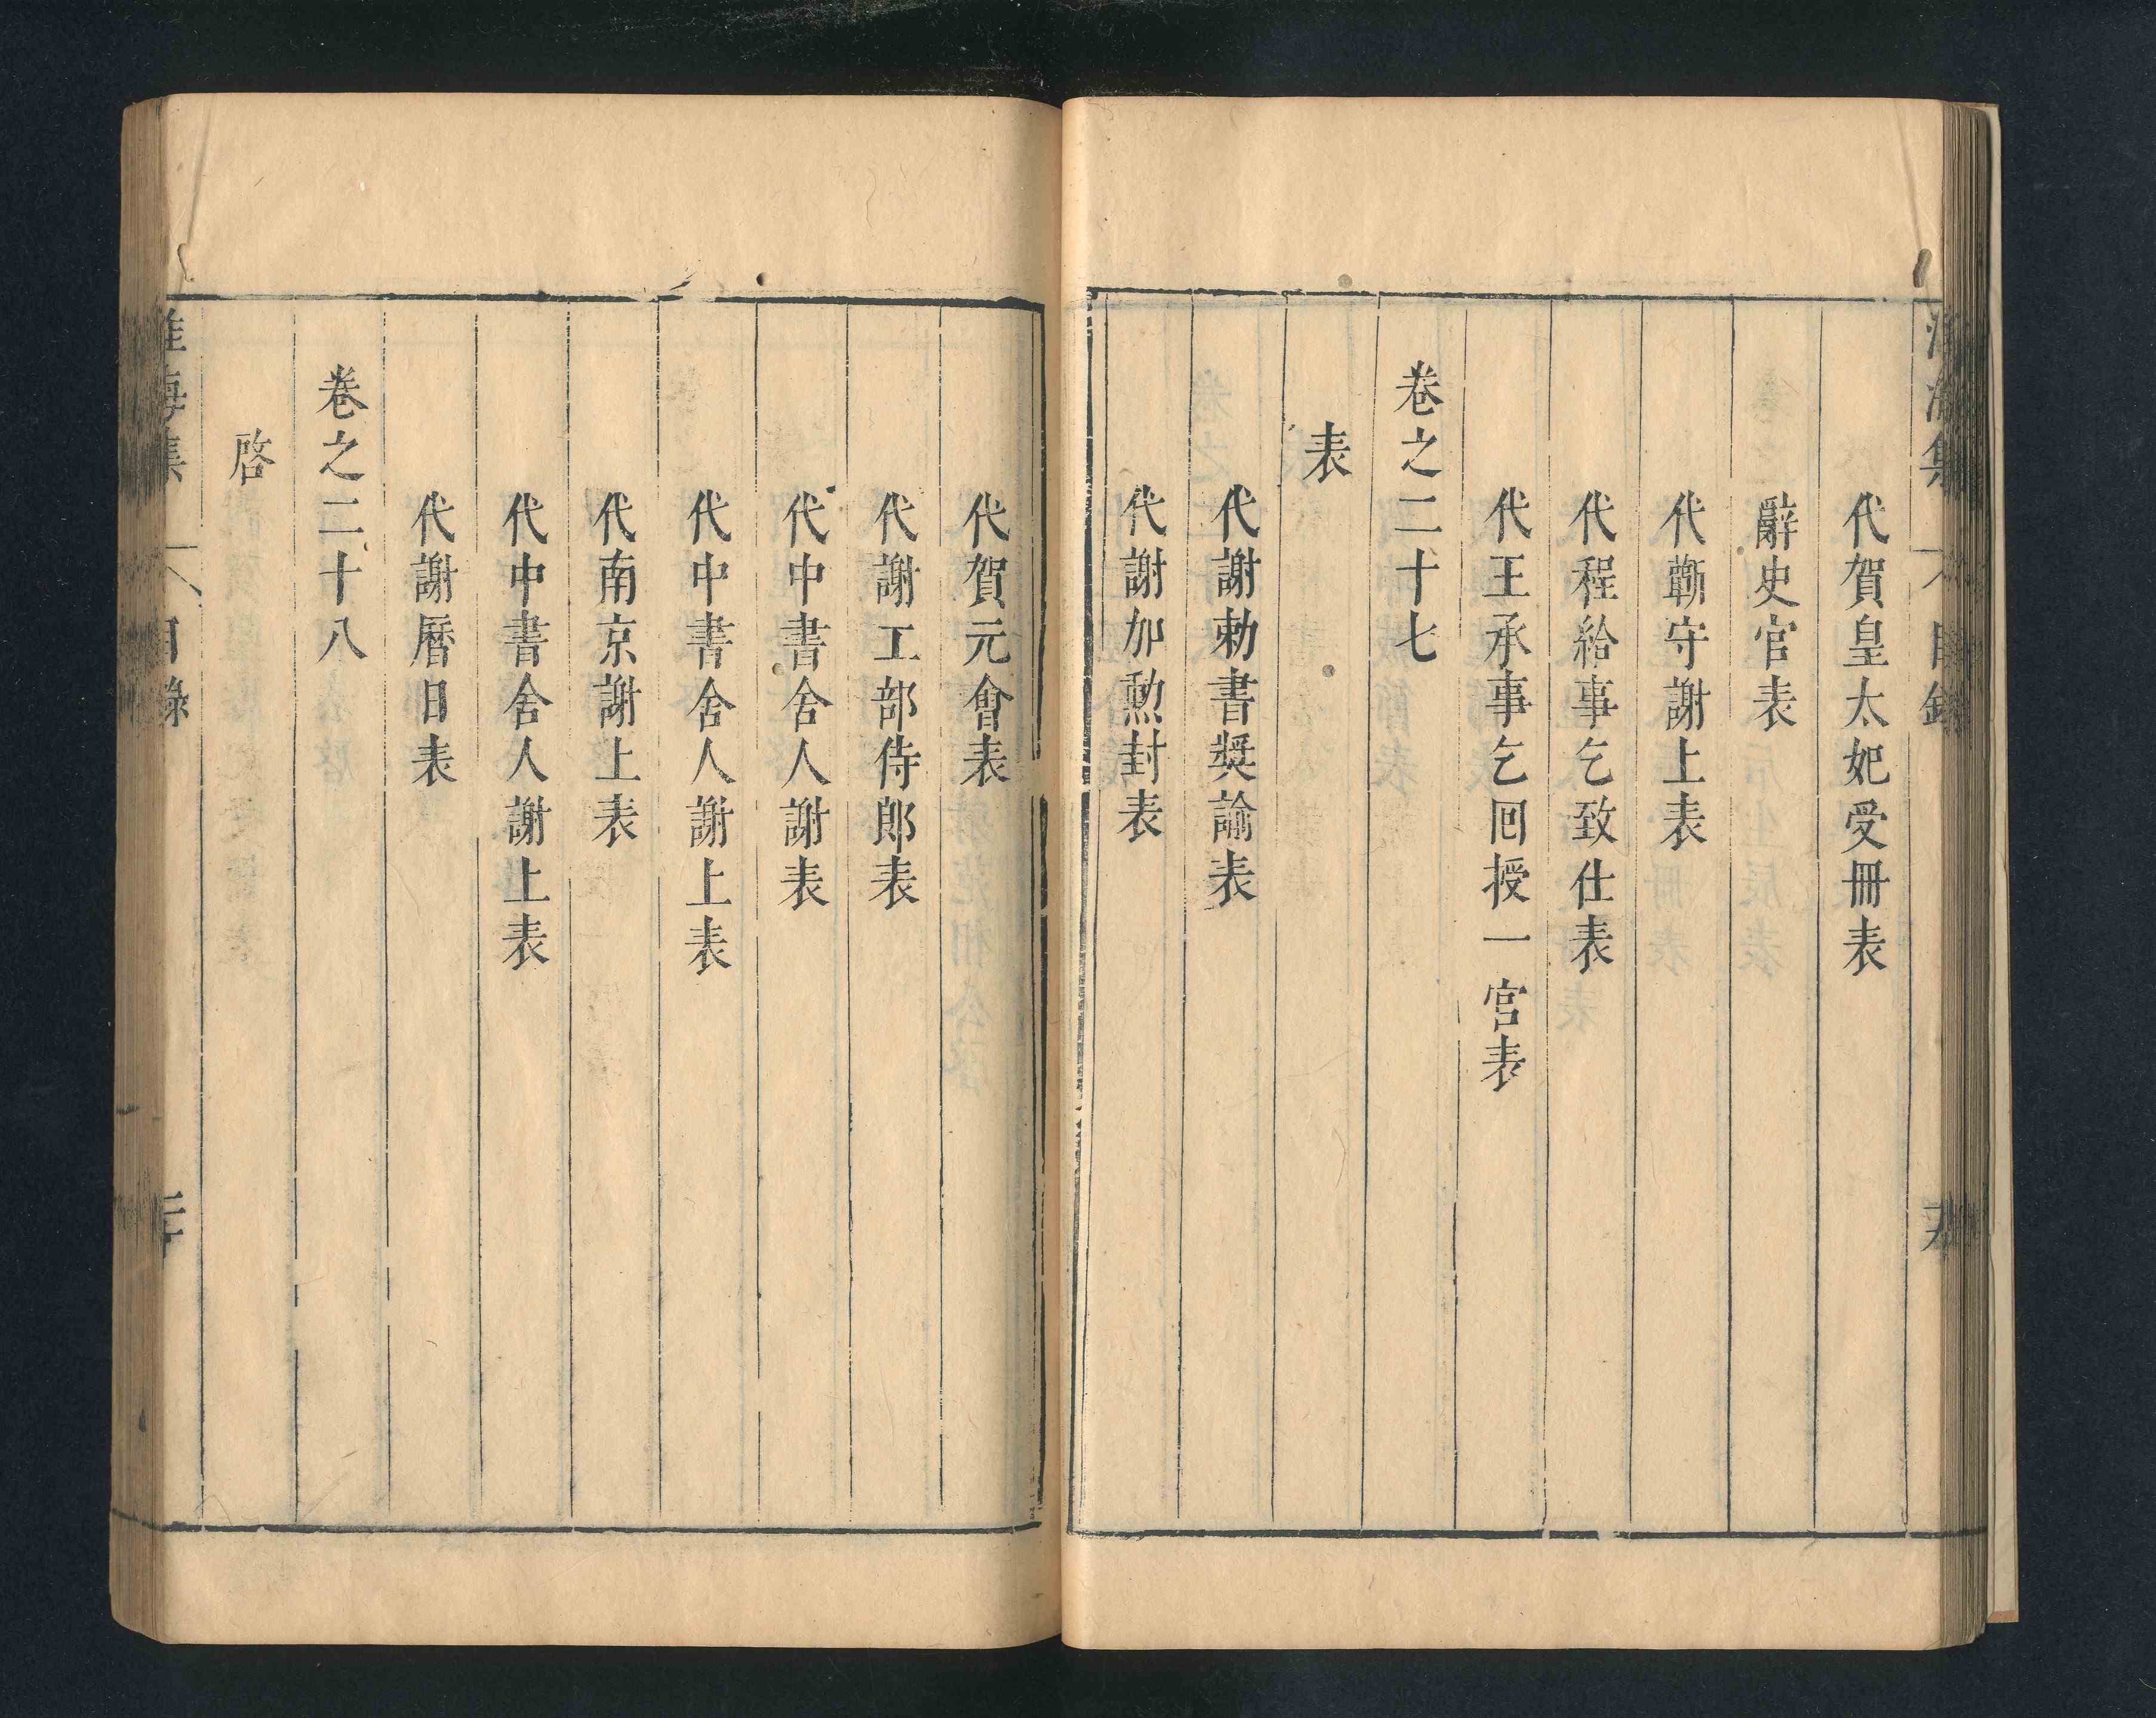 代賀皇太妃受冊表
辭史官表
代蘄守謝上表
代程給事乞致仕表
代王承事乞回授一官表
卷之二十七
表
代謝勅書奬諭表
代謝加勲封表
代賀元會表
代謝工部侍郎表
代中書舍人謝表
代中書舍人謝上表
代南京謝上表
代中書舍人謝上表
代謝曆日表
卷之二十八
啓